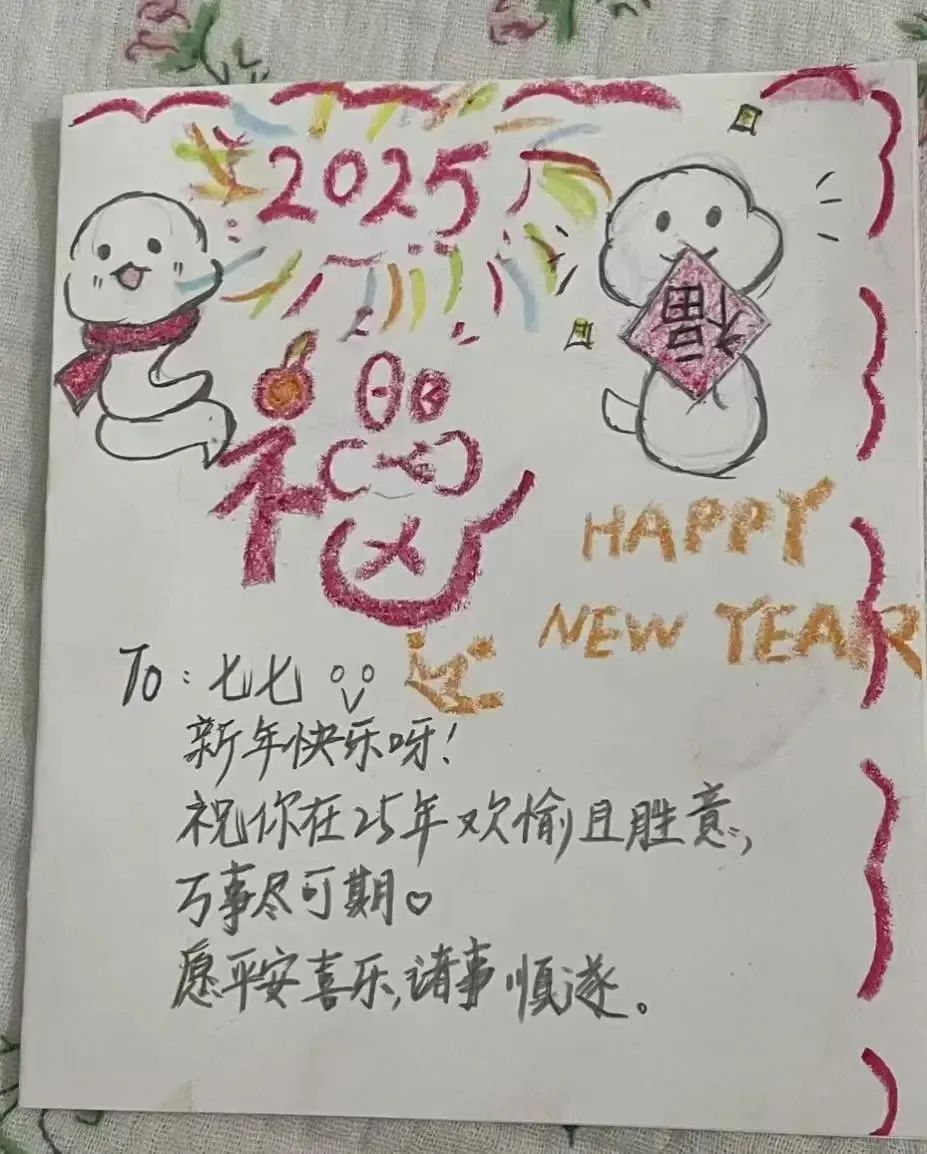 2025
福
福
HAPPY
NEW YEAR
To：七七
新年快乐呀！
祝你在25年欢愉且胜意，
万事尽可期♡
愿平安喜乐，诸事顺遂。